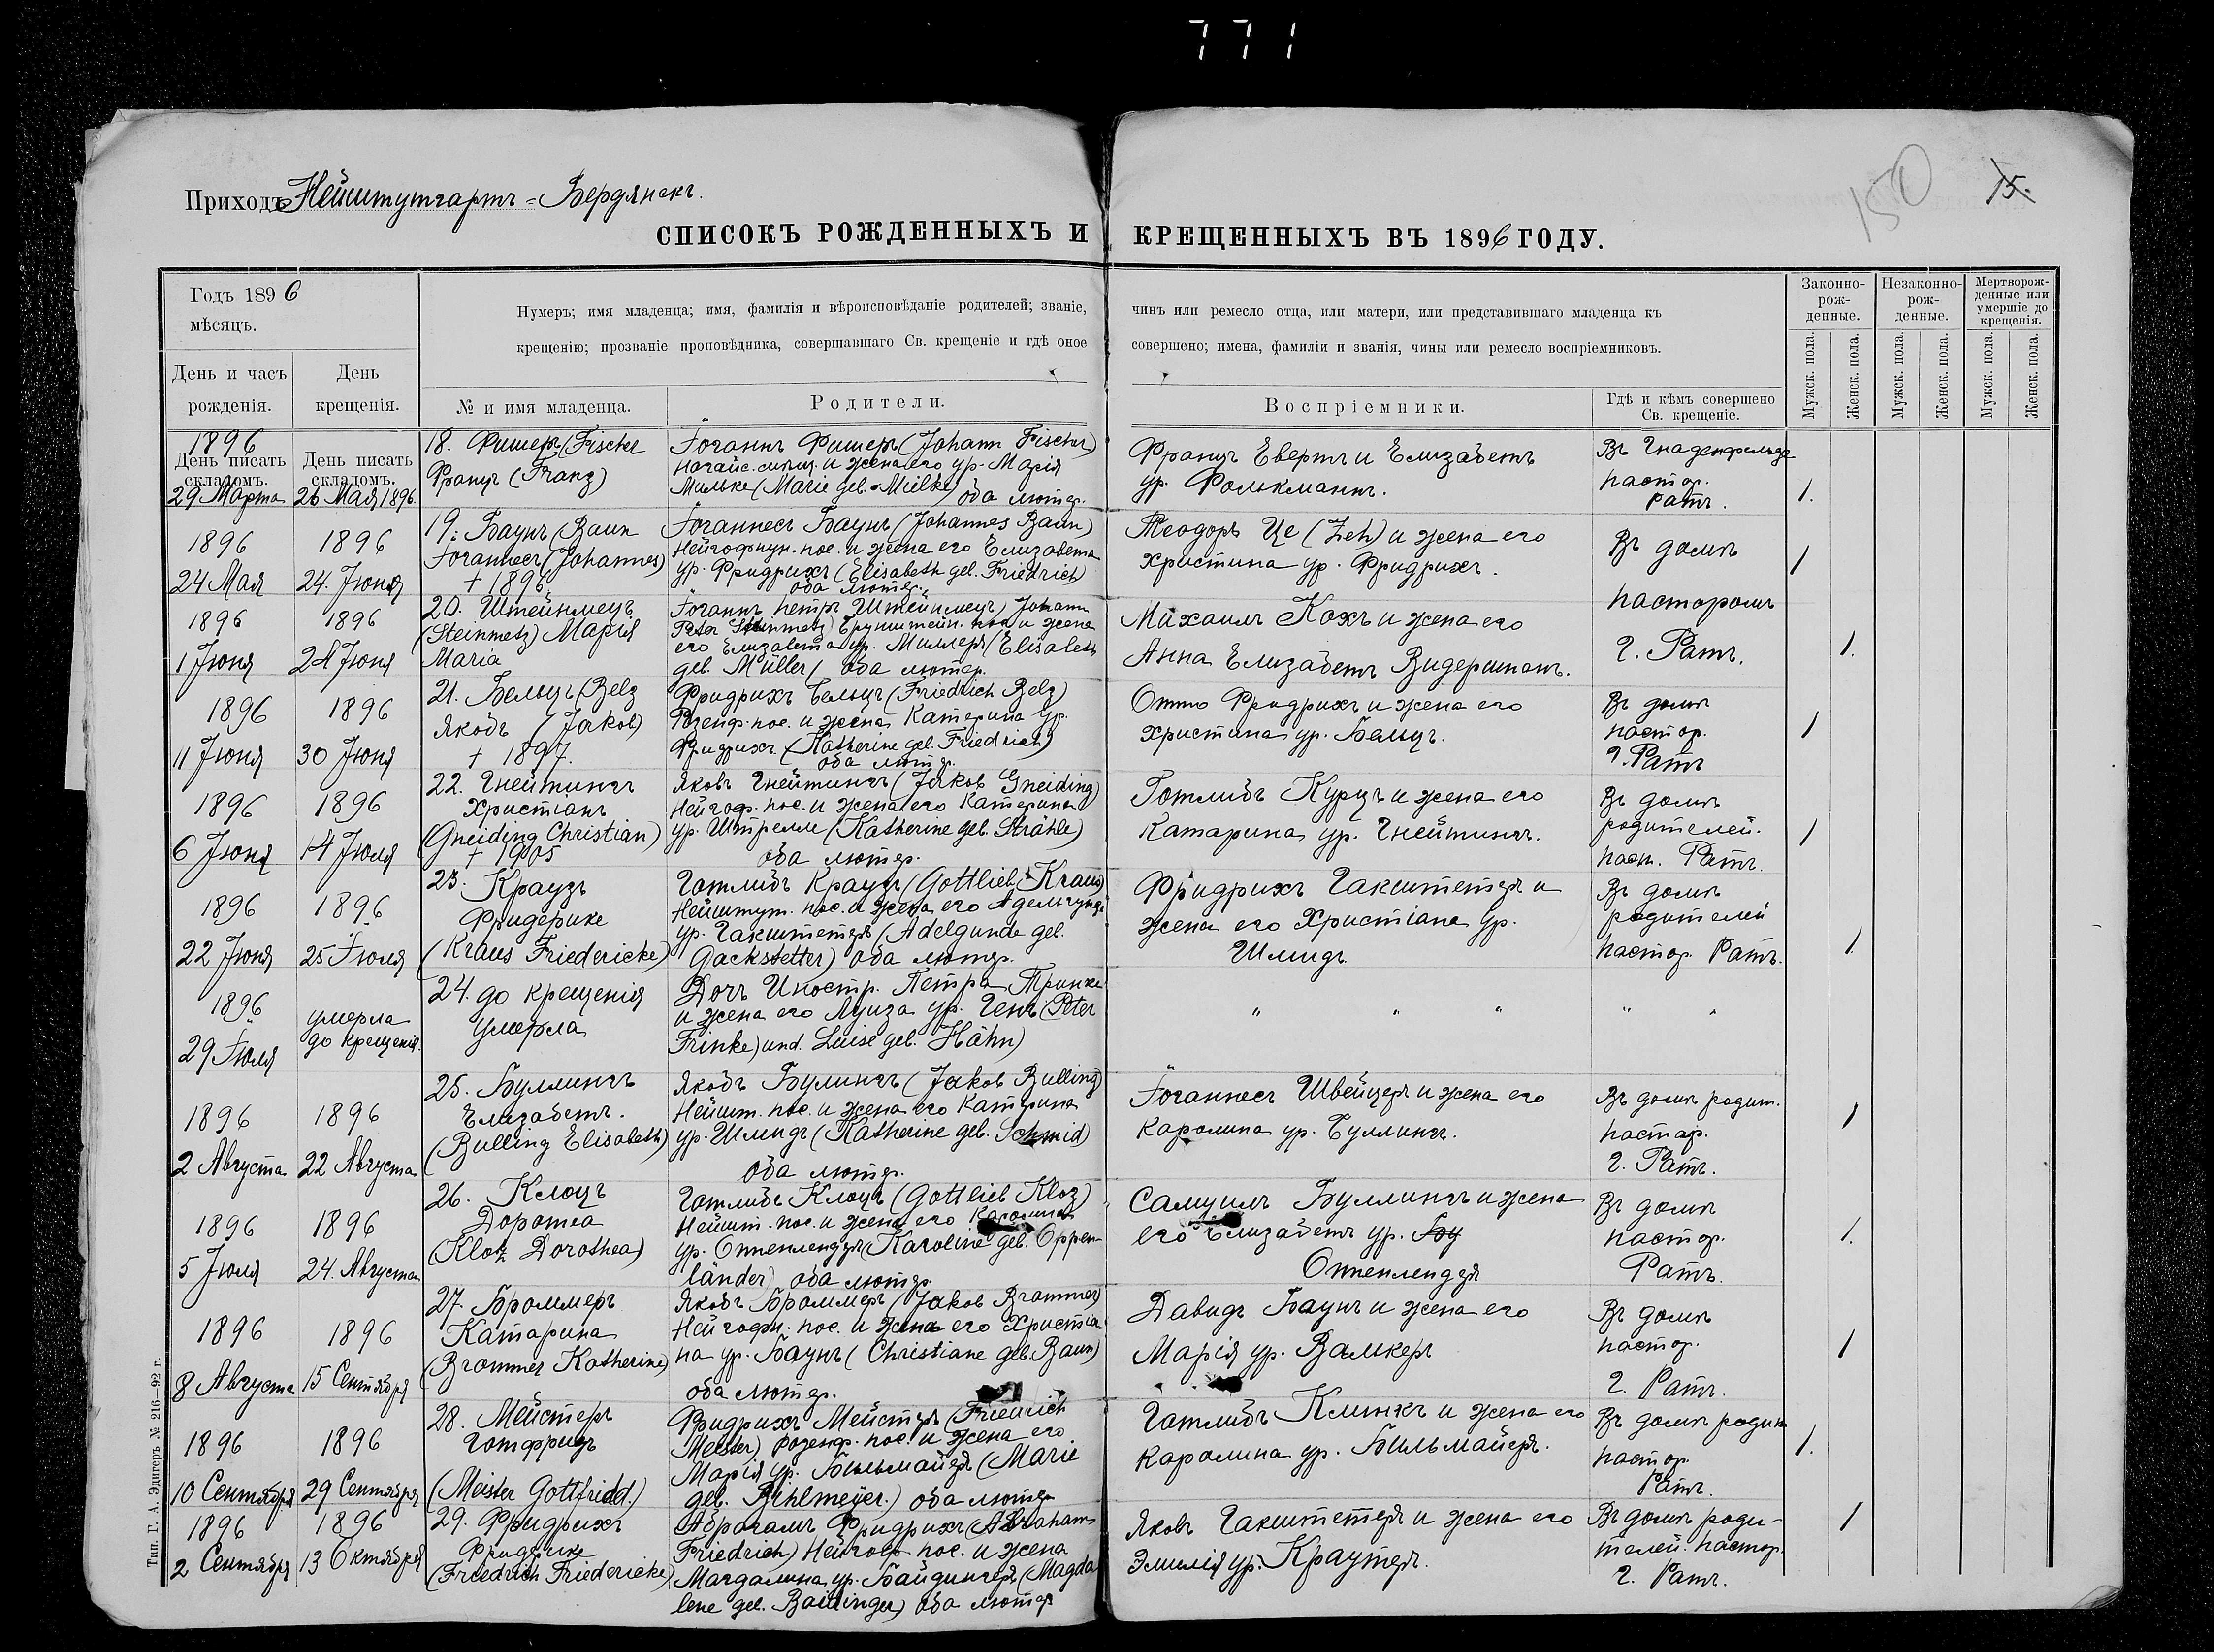 771
150
15.
Приходъ Нейштутгартъ = Бердянскъ.
СПИСОКЪ РОЖДЕННЫХЪ И КРЕЩЕННЫХЪ ВЪ 1896 ГОДУ.
Годъ 1896
мѣсяцъ.
День и часъ
рожденія.
День
крещенія.
Нумеръ; имя младенца; имя, фамилія и вѣроисповѣданіе родителей; званіе,
крещенію; прозваніе проповѣдника, совершавшаго Св. крещеніе и гдѣ оное
чинъ или ремесло отца, или матери, или представившаго младенца къ
совершено; имена, фамиліи и званія, чины или ремесло воспріемниковъ.
№ и имя младенца.
Родители.
Воспріемники.
Гдѣ и кѣмъ совершено
Св. крещеніе.
Законно-
рож-
денные.
Незаконно-
рож-
денные.
Мертворож-
денные или
умершіе до
крещенія.
Мужск. пола.
Женск. пола.
Мужск. пола.
Женск. пола.
Мужск. пола.
Женск. пола.
1896
День писать
складомъ.
29 Марта
День писать
складомъ.
26 Мая 1896
18. Фишеръ (Fischer
Францъ (Franz)
Іоганнъ Фишеръ (Johann Fischer)
и жена его ур. Марія
Мильке (Marie geb. Mielke) оба лютер.
Францъ Евертъ и Елизабетъ
ур. Фолькманнъ.
Въ Гнаденфельдѣ
пастор.
Ратъ.
1.
1896
24 Мая
1896
24. Іюня
19. Баунъ (Baun
Іоганнесъ (Johannes)
+ 1896
Іоганнесъ Баунъ (Johannes Baun)
Нейгофнун. пос. и жена его Елизавета
ур. Фридрихъ (Elisabeth geb. Friedrich)
оба лютер.
Теодоръ Це (Zeh) и жена его
Христина ур. Фридрихъ.
Въ домѣ
пасторомъ
1
1896
1 Іюня
1896
24 Іюня
20. Штейнмецъ
(Steinmetz) Марія
Maria
Іоганнъ Петръ Штейнмецъ) Johann
Peter Steinmetz) Грунштейн. пос. и жена
его Елизавета ур. Миллеръ (Elisabeth
geb. Müller) оба лютер.
Михаилъ Кохъ и жена его
Анна Елизабетъ Видерштанъ.
Г. Ратъ.
1.
1896
11 Іюня
1896
30 Іюня
21. Бельцъ (Belz
Якобъ (Jakob)
+ 1897.
Фридрихъ Бельцъ (Friedrich Belz)
Розенф. пос. и жена Катерина ур.
Фридрихъ (Katherine geb. Friedrich)
оба лютер.
Отто Фридрихъ и жена его
Христина ур. Бельцъ.
Въ домѣ
пастор.
Г. Ратъ
1
1896
6 Іюня
1896
14 Іюля
22. Гнейтингъ
Христіанъ
(Gneiding Christian)
+ 1905
Яковъ Гнейтингъ (Jakob Gneiding)
Нейгоф. пос. и жена его Катерина
ур. Штрелле (Katherine geb. Strähle)
оба лютер.
Готлибъ Курцъ и жена его
Катарина ур. Гнейтингъ.
Въ домѣ
родителей.
паст. Ратъ.
1
1896
22 Іюня
1896
25 Іюля
23. Краузъ
Фридерике
(Kraus Friedericke)
Готлибъ Краузъ (Gottlieb Kraus)
Нейштут. пос. и жена его Адельгунде
ур. Гакштетеръ (Adelgunde geb.
Gackstetter) оба лютер.
Фридрихъ Гакштетеръ и
жена его Христіана ур.
Шмидъ
Въ домѣ
родителей
пастор. Ратъ.
1.
1896
29 Іюля
умерла
до крещенія.
24. до крещенія
умерла
Дочь Иностр. Петра Тринке
и жена его Луиза ур. Генъ (Peter
Trinke) und. Luise geb. Hähn)
" " " " "
1896
2 Августа
1896
22 Августа
25. Буллингъ
Елизабетъ.
(Bulling Elisabeth)
Якобъ Булингъ (Jakob Bulling)
Нейшт. пос. и жена его Катерина
ур. Шмидъ (Katherine geb. Schmid)
оба лютер.
Іоганнесъ Швейцеръ и жена его
Каролина ур. Буллингъ.
Въ домѣ родит.
пастор.
Г. Ратъ.
1
1896
5 Іюля
1896
24. Августа
26. Клоцъ
Доротеа
(Kloz Dorothea)
Готлибъ Клоцъ (Gottlieb Kloz)
Нейшт. пос. и жена его Каролина
ур. Оппенлендеръ (Karoline geb. Oppen-
länder) оба лютер.
Самуилъ Буллингъ и жена
его Елизабетъ ур. Бу
Оппенлендеръ
Въ домѣ
пастор.
Ратъ.
1.
1896
8 Августа
1896
15 Сентября
27. Броммеръ
Катарина
(Brommer Katherine)
Якобъ Броммеръ (Jakob Brommer)
Нейгофн. пос. и жена его Христіа
на ур. Баунъ (Christiane geb. Baun)
оба лютер.
Давидъ Баунъ и жена его
Марія ур. Валкеръ
Въ домѣ
пастор.
Г. Ратъ.
1
1896
10 Сентября
1896
29 Сентября
28. Мейстеръ
Готфридъ
(Meister Gottfried.)
Фридрихъ Мейстеръ (Friedrich
Meister) розенф. пос. и жена его
Марія ур. Бильмайеръ (Marie
geb. Bihlmeyer.) оба лютер
Готлибъ Клинкъ и жена его
Каролина ур. Бильмайеръ.
Въ домѣ родит
пастор.
Ратъ.
1.
1896
2 Сентября
1896
13 Октября
29. Фридрихъ
Фридерике
(Friedrich Friedericke)
Абрагамъ Фридрихъ (Abraham
Friedrich) Нейгоф. пос. и жена
Магдалина ур. Байдингеръ (Magda
lene geb. Baidinger) оба лютер
Яковъ Гакштетеръ и жена его
Эмилія ур. Краутеръ.
Въ домѣ роди-
телей. пастор.
Г. Ратъ.
1
Тип. Г. А. Эдигеръ № 216—92 г.